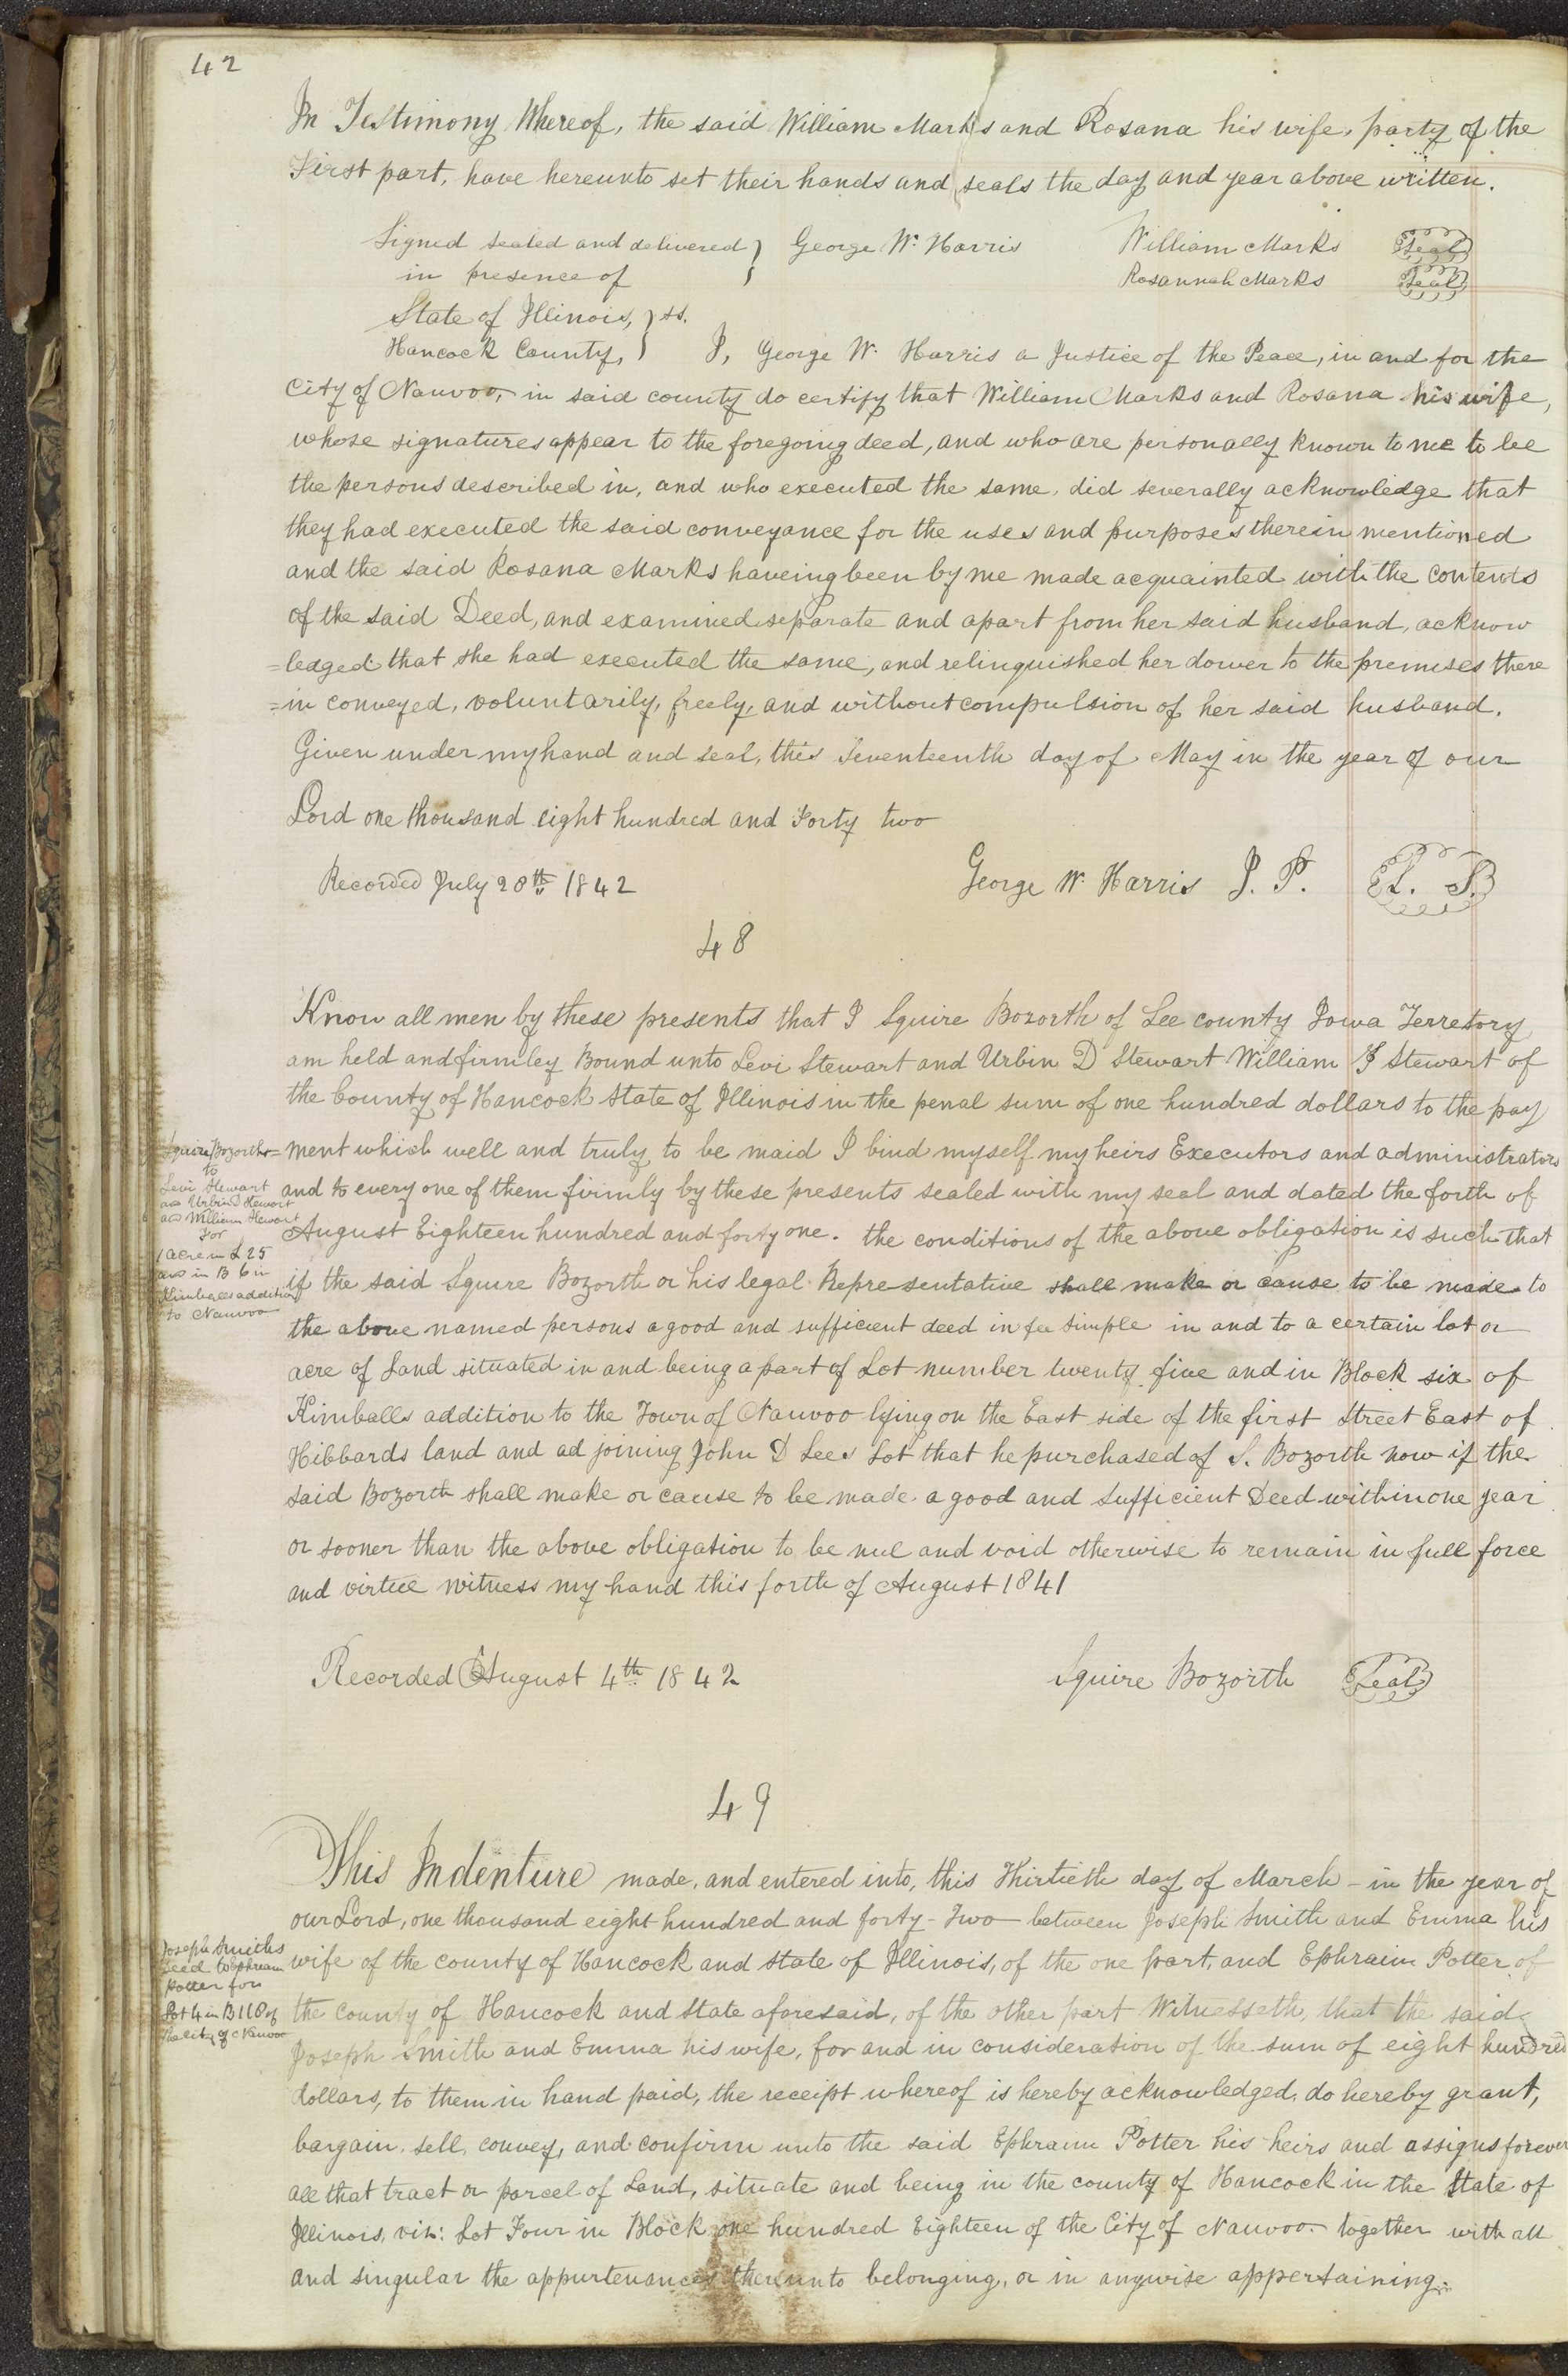 42
In Testimony Whereof, the said William Marks and Rosana his wife, party of the
First part, have hereunto set their hands and seals the day and year above written.
Signed sealed and delivered } George W. Harris William Marks Seal
in presence of } Rosannah Marks Seal
State of Illinois, } ss.
Hancock County, } I, George W. Harris a Justice of the Peace, in and for the
City of Nauvoo, in said county do certify that William Marks and Rosana his wife,
whose signatures appear to the foregoing deed, and who are personally known to me to be
the persons described in, and who executed the same, did severally acknowledge that
they had executed the said conveyance for the uses and purposes therein mentioned
and the said Rosana Marks haveing been by me made acquainted with the contents
of the said Deed, and examined separate and apart from her said husband, acknow
=ledged that she had executed the same, and relinquished her dower to the premises there
=in conveyed, voluntarily, freely, and without compulsion of her said husband.
Given under my hand and seal, this Seventeenth day of May in the year of our
Lord one thousand eight hundred and Forty two
Recorded July 20th 1842 George W. Harris J. P. L. S.
48
Know all men by these presents that I Squire Bozorth of Lee county Iowa Terretory
am held and firmley Bound unto Levi Stewart and Urbin D Stewart William J Stewart of
the County of Hancock State of Illinois in the penal sum of one hundred dollars to the pay
=ment which well and truly to be maid I bind myself my heirs Executors and administrators
and to every one of them firmly by these presents sealed with my seal and dated the forth of
August Eighteen hundred and forty one. the conditions of the above obligation is such that
if the said Squire Bozorth or his legal Representative shall make or cause to be made to
the above named persons a good and sufficient deed in fee simple in and to a certain lot or
acre of Land situated in and being a part of Lot number twenty five and in Block six of
Kimballs addition to the Town of Nauvoo lying on the East side of the first Street East of
Hibbards land and ad joining John D Lees Lot that he purchased of S. Bozorth now if the
said Bozorth shall make or cause to be made a good and sufficient Deed within one year
or sooner than the above obligation to be nul and void otherwise to remain in full force
and virtue witness my hand this forth of August 1841
Squire Bozorth
to
Levi Stewart
and Urbin D Stewart
and William Stewart
For
1 acre in L 25
and in B 6 in
Kimballs addition
to Nauvoo
Recorded August 4th 1842 Squire Bozorth Seal
49
This Indenture made, and entered into, this Thirtieth day of March - in the year of
our Lord, one thousand eight hundred and forty-Two between Joseph Smith and Emma his
wife of the county of Hancock and State of Illinois, of the one part, and Ephraim Potter of
the county of Hancock and State aforesaid, of the other part Witnesseth, that the said
Joseph Smith and Emma his wife, for and in consideration of the sum of eight hundred
dollars, to them in hand paid, the receipt whereof is hereby acknowledged, do hereby grant,
bargain, sell, convey, and confirm unto the said Ephraim Potter his heirs and assigns forever
all that tract or parcel of Land, situate and being in the county of Hancock in the State of
Illinois, viz: Lot Four in Block one hundred Eighteen of the City of Nauvoo together with all
and singular the appurtenances thereunto belonging, or in anywise appertaining.
Joseph Smiths
Deed to Ephraim
Potter for
Lot 4 in B 118 of
the City of Nauvoo